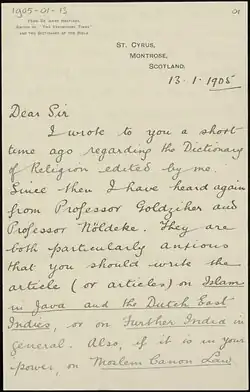 1905-01-13
01
FROM DR JAMES HASTINGS
EDITOR OF "THE EXPOSITORY TIMES"
AND THE DICTIONARY OF THE BIBLE
ST. CYRUS,
MONTROSE,
SCOTLAND,
13.1.1905
Dear Sir
I wrote to you a short
time ago regarding the Dictionary
of Religion edited by me.
Since then I have heard again
from Professor Goldziher and
Professor Nöldeke. They are
both particularly anxious
that you should write the
article (or articles) on Islam
in Java and the Dutch East
Indies, or on Further India in
general. Also, if it is in your
power, on Moslem Canon Law